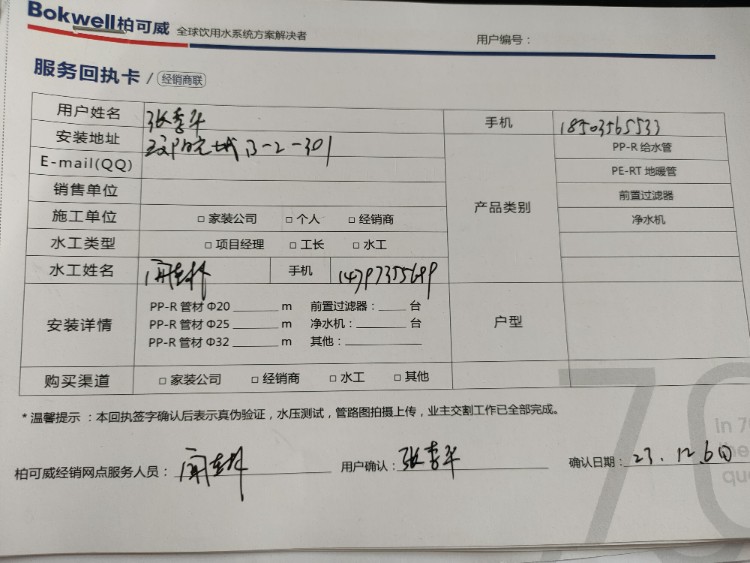 Bokwell柏可威 全球饮用水系统方案解决者 用户编号：
服务回执卡 / 经销商联
用户姓名 张李平 手机 18503565533
安装地址 B-2-301 PP-R 给水管
E-mail(QQ) PE-RT 地暖管
销售单位 产品类别 前置过滤器
施工单位 □ 家装公司 □ 个人 □ 经销商 净水机
水工类型 □ 项目经理 □ 工长 □ 水工
水工姓名 手机 14797355699
安装详情 户型
PP-R 管材 Φ20 ______ m 前置过滤器：____ 台
PP-R 管材 Φ25 ______ m 净水机：____ 台
PP-R 管材 Φ32 ______ m 其他：______
购买渠道 □ 家装公司 □ 经销商 □ 水工 □ 其他
* 温馨提示：本回执签字确认后表示真伪验证，水压测试，管路图拍摄上传，业主交割工作已全部完成。
柏可威经销网点服务人员： 用户确认：张李平 确认日期：23.12.6日
70
in 70